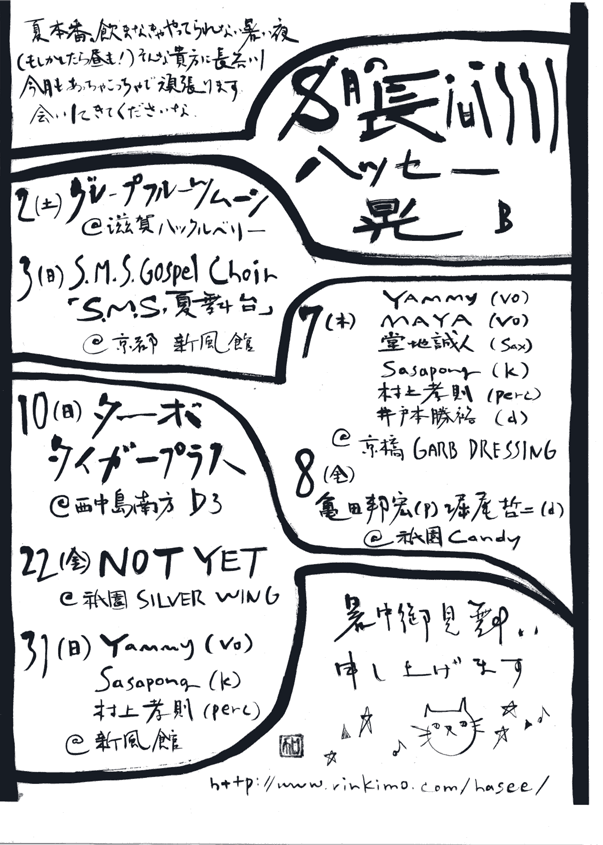 夏本番。飲まなきゃやってられない暑い夜
(もしかしたら昼も!)そんな貴方に長谷川
今月もあっちゃこっちゃで頑張ります
会いにきてくださいな
8月の長谷川
ハッセー
晃 B
2(土) グレープフルーツムーン
@滋賀ハックルベリー
3(日) S.M.S.Gospel Choir
「S.M.S.夏舞台」
@京都 新風館
7(木) Yammy (vo)
MAYA (vo)
堂地誠人 (sax)
Sasapong (k)
村上孝則 (perc)
井戸本勝裕 (d)
@京橋 GARB DRESSING
8(金)
亀田邦宏(p) 堀尾哲二(d)
@祇園Candy
10(日) ターボ
タイガープラス
@西中島南方 D3
22(金) NOT YET
@祇園 SILVER WING
31(日) Yammy (vo)
Sasapong (k)
村上孝則 (perc)
@新風館
暑中御見舞..
申し上げます
和
http://www.rinkimo.com/hasee/